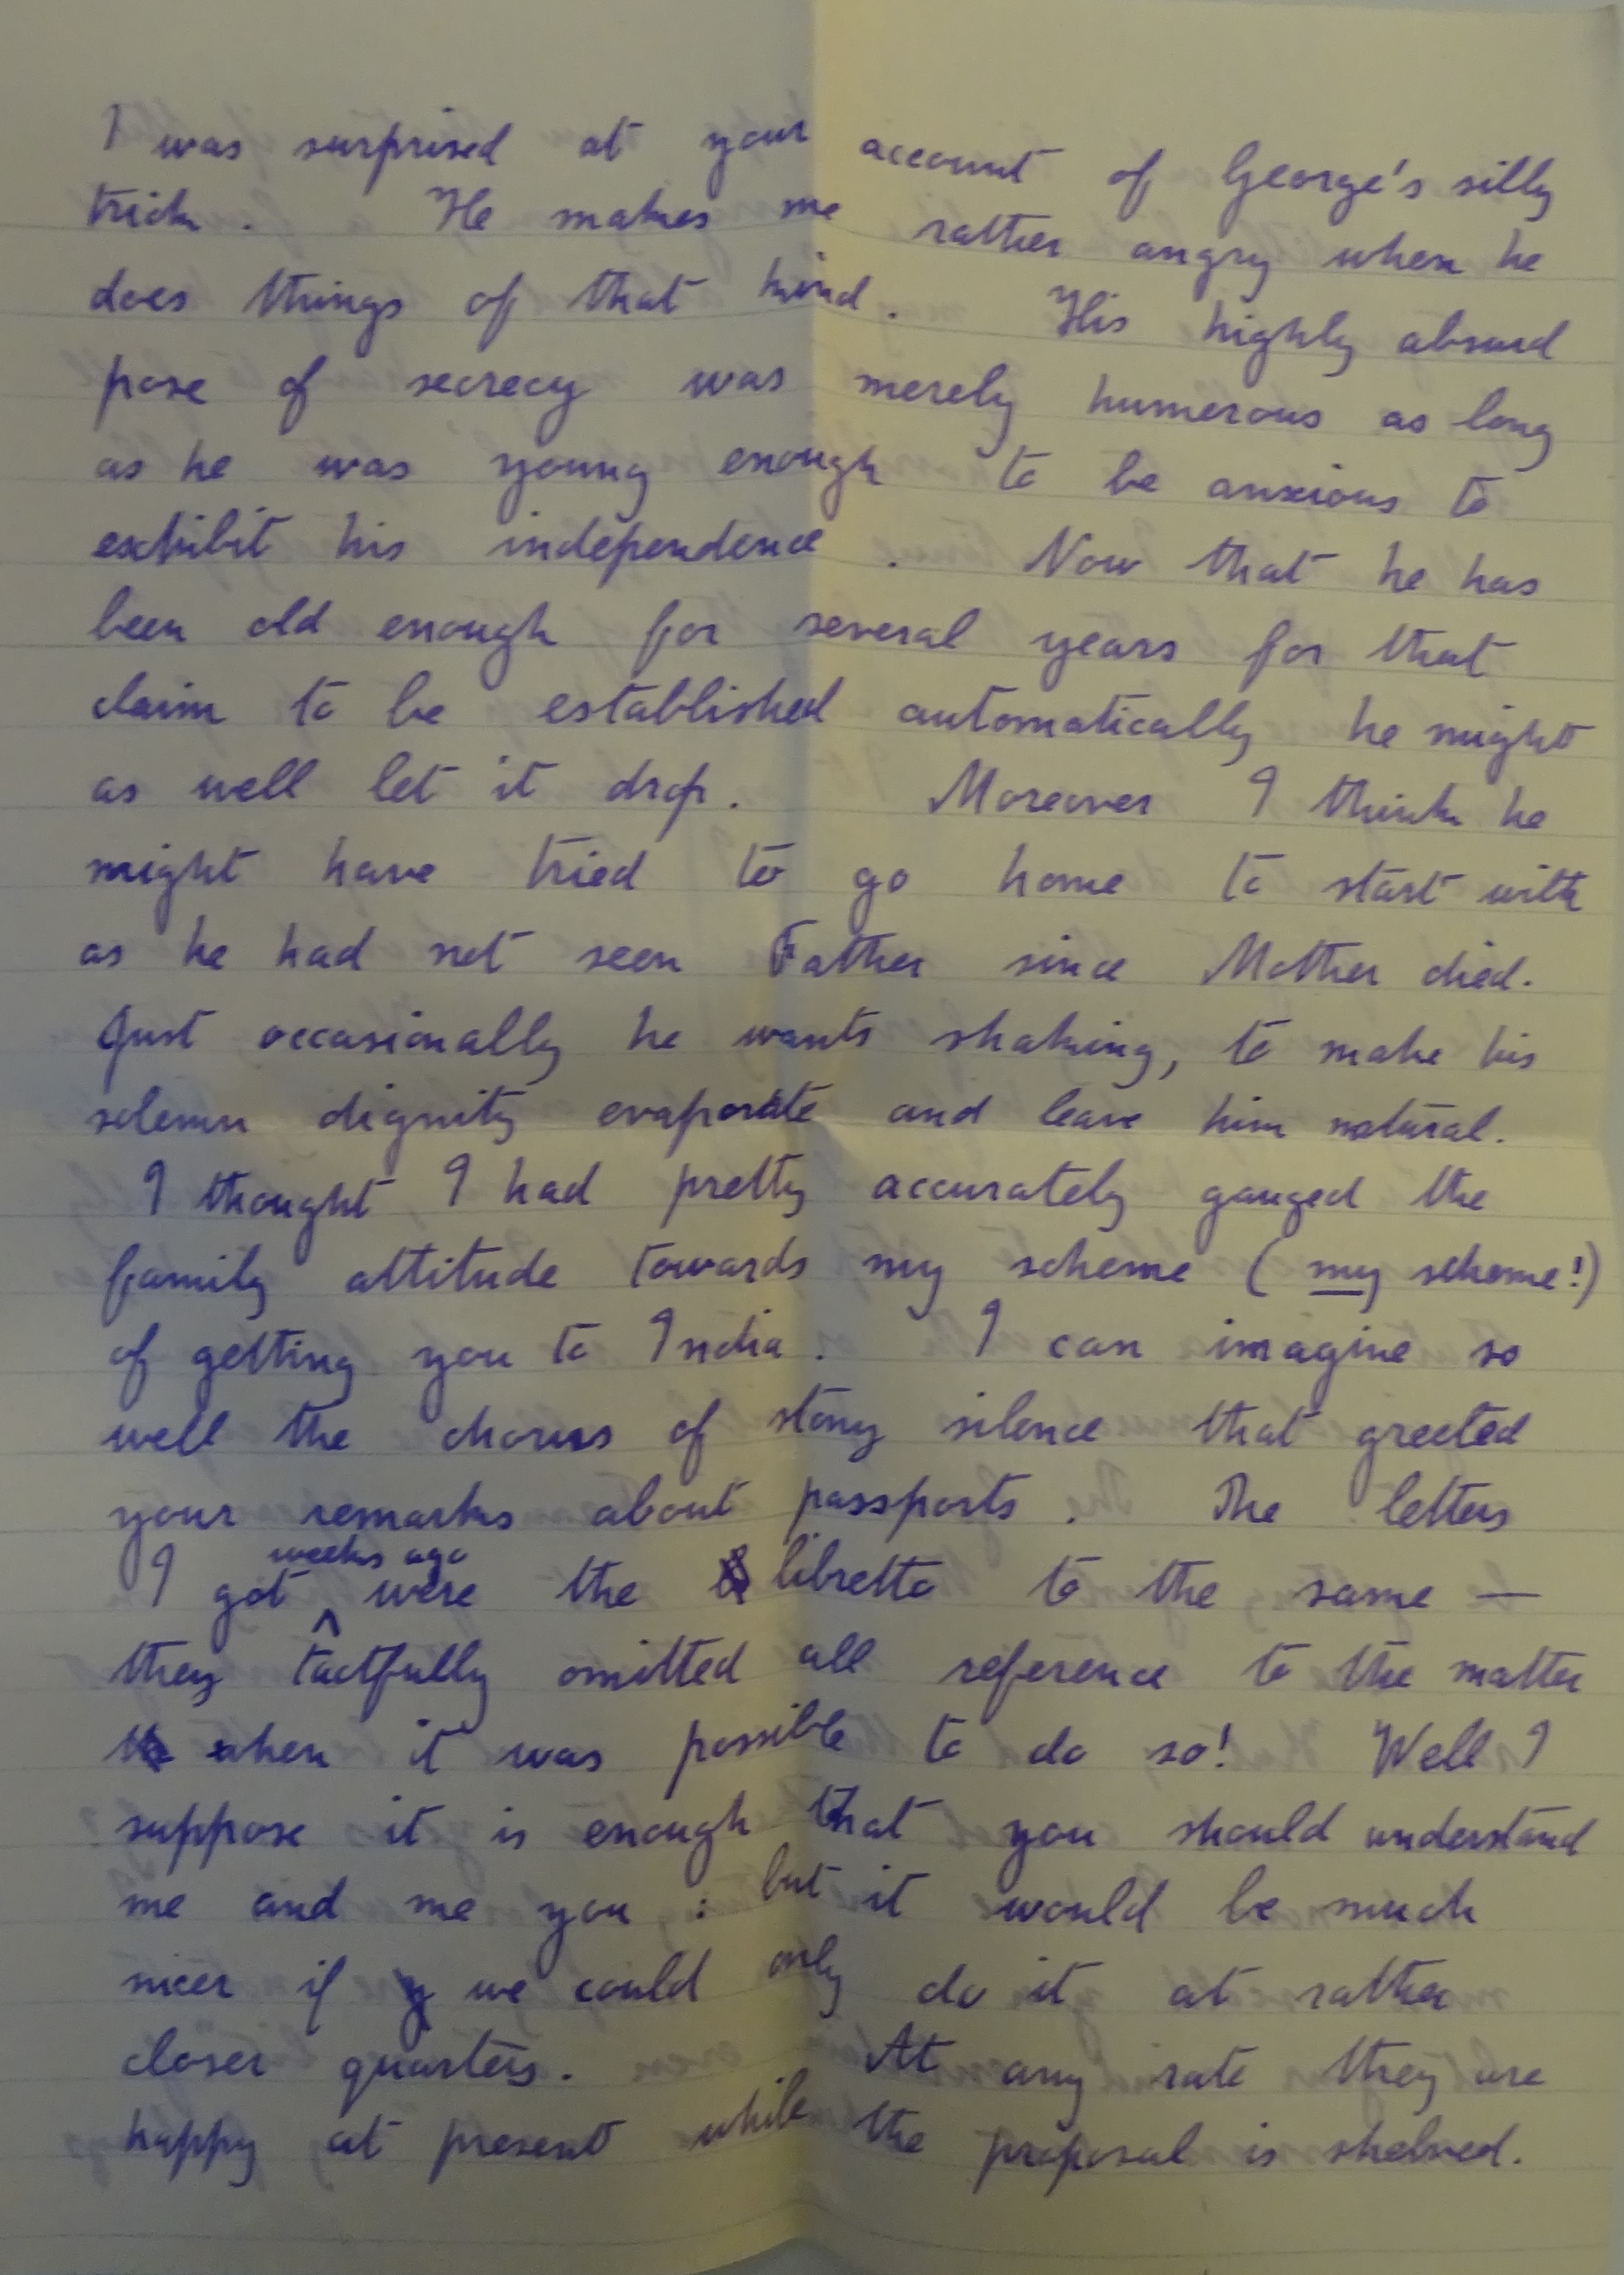 I was surprised at your account of George's silly
trick. He makes me rather angry when he
does things of that kind. His highly absurd
pose of secrecy was merely humerous as long
as he was young enough to be anxious to
exhibit his independence. Now that he has
been old enough for several years for that
claim to be established automatically he might
as well let it drop. Moreover I think he
might have tried to go home to start with
as he had not seen Father since Mother died.
Just occasionally he wants shaking, to make his
solemn dignity evaporate and leave him natural.
I thought I had pretty accurately gauged the
family attitude towards my scheme (my scheme!)
of getting you to India. I can imagine so
well the chorus of stony silence that greeted
your remarks about passports. The letters
I got weeks ago were the libretto to the same —
they tactfully omitted all reference to the matter
when it was possible to do so! Well I
suppose it is enough that you should understand
me and me you : but it would be much
nicer if we could only do it at rather
closer quarters. At any rate they are
happy at present while the proposal is shelved.